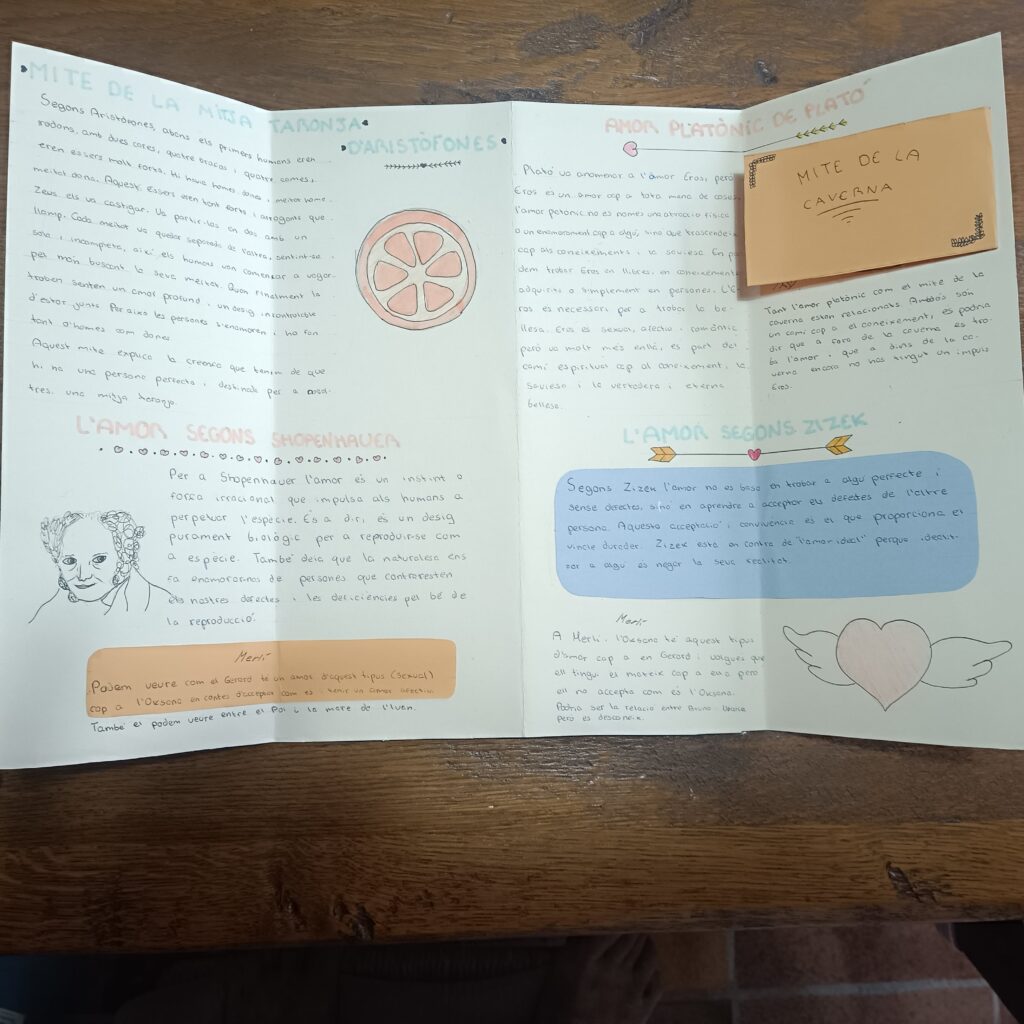 MITE DE LA MITJA TARONJA
D'ARISTÒFONES
Segons Aristòfones, abans els primers humans eren
rodons, amb dues cares, quatre braços i quatre cames,
eren essers molt forts. Hi havia homes dones i meitat home
meitat dona. Aquest éssers eren tant forts i arrogants que
Zeus els va castigar. Va partir-los en dos amb un
llamp. Cada meitat va quedar separada de l'altra, sentint-se
sola i incompleta, així els humans van començar a vagar
pel món buscant la seva meitat. Quan finalment la
troben senten un amor profund i un desig incontrolable
d'estar junts Per això les persones s'enamoren i ho fan
tant d'homes com dones
Aquest mite explica la creença que tenim de que
hi ha una persona perfecta i destinada per a
tres, una mitja taronja.
L'AMOR SEGONS SHOPENHAUER
Per a Shopenhauer l'amor és un instint o
força irracional que impulsa als humans a
perpetuar l'espècie. És a dir, és un desig
purament biològic per a reproduir-se com
a espècie. També deia que la naturalesa ens
fa enamorarnos de persones que contraresten
els nostres defectes i les deficiències pel bé de
la reproducció.
Merlí
Podem veure com el Gerard té un amor d'aquest tipus (sexual)
cap a l'Oksana en contes d'acceptar com és i tenir un amor afectiu
També el podem veure entre el Pol i la mare de l'Ivan.
AMOR PLATÒNIC DE PLATÓ
Plató va anomenar a l'amor Eros, però
Eros és un amor cap a tota mena de coses,
l'amor platonic no es nomes una atracció física
o un enamorament cap a algú, sino que trascendeix
cap als coneixements i la saviesa. En po
dem trobar Eros en llibres, en coneixements
adquirits o simplement en persones. L'E-
ros es necessari per a trobar la be-
llesa. Eros és sexual, afectiu i romàntic
però va molt més enllà, es part del
camí espiritual cap al coneixement, la
saviesa i la vertadera i eterna
bellesa.
MITE DE LA
CAVERNA
Tant l'amor platònic com el mite de la
caverna estan relacionats. Ambdós són
un camí cap a el coneixement, es podria
dir que a fora de la caverna es tro-
ba l'amor i que a dins de la ca-
verna encara no has tingut un impuls
Eros.
L'AMOR SEGONS ZIZEK
Segons Zizek l'amor no es basa en trobar a algu perfecte i
sense defectes, sinó en aprendre a acceptar els defectes de l'altre
persona. Aquesta acceptació i convivència és el que proporciona el
vincle durader. Zizek està en contra de "l'amor ideal" perque idealit-
zar a algu és negar la seva realitat.
Merlí
A Merlí, l'Oksana té aquest tipus
d'amor cap a en Gerard i volgués que
ell tingui el mateix cap a ella però
ell no accepta com és l'Oksana.
Podria ser la relació entre Bruno
però es desconeix.